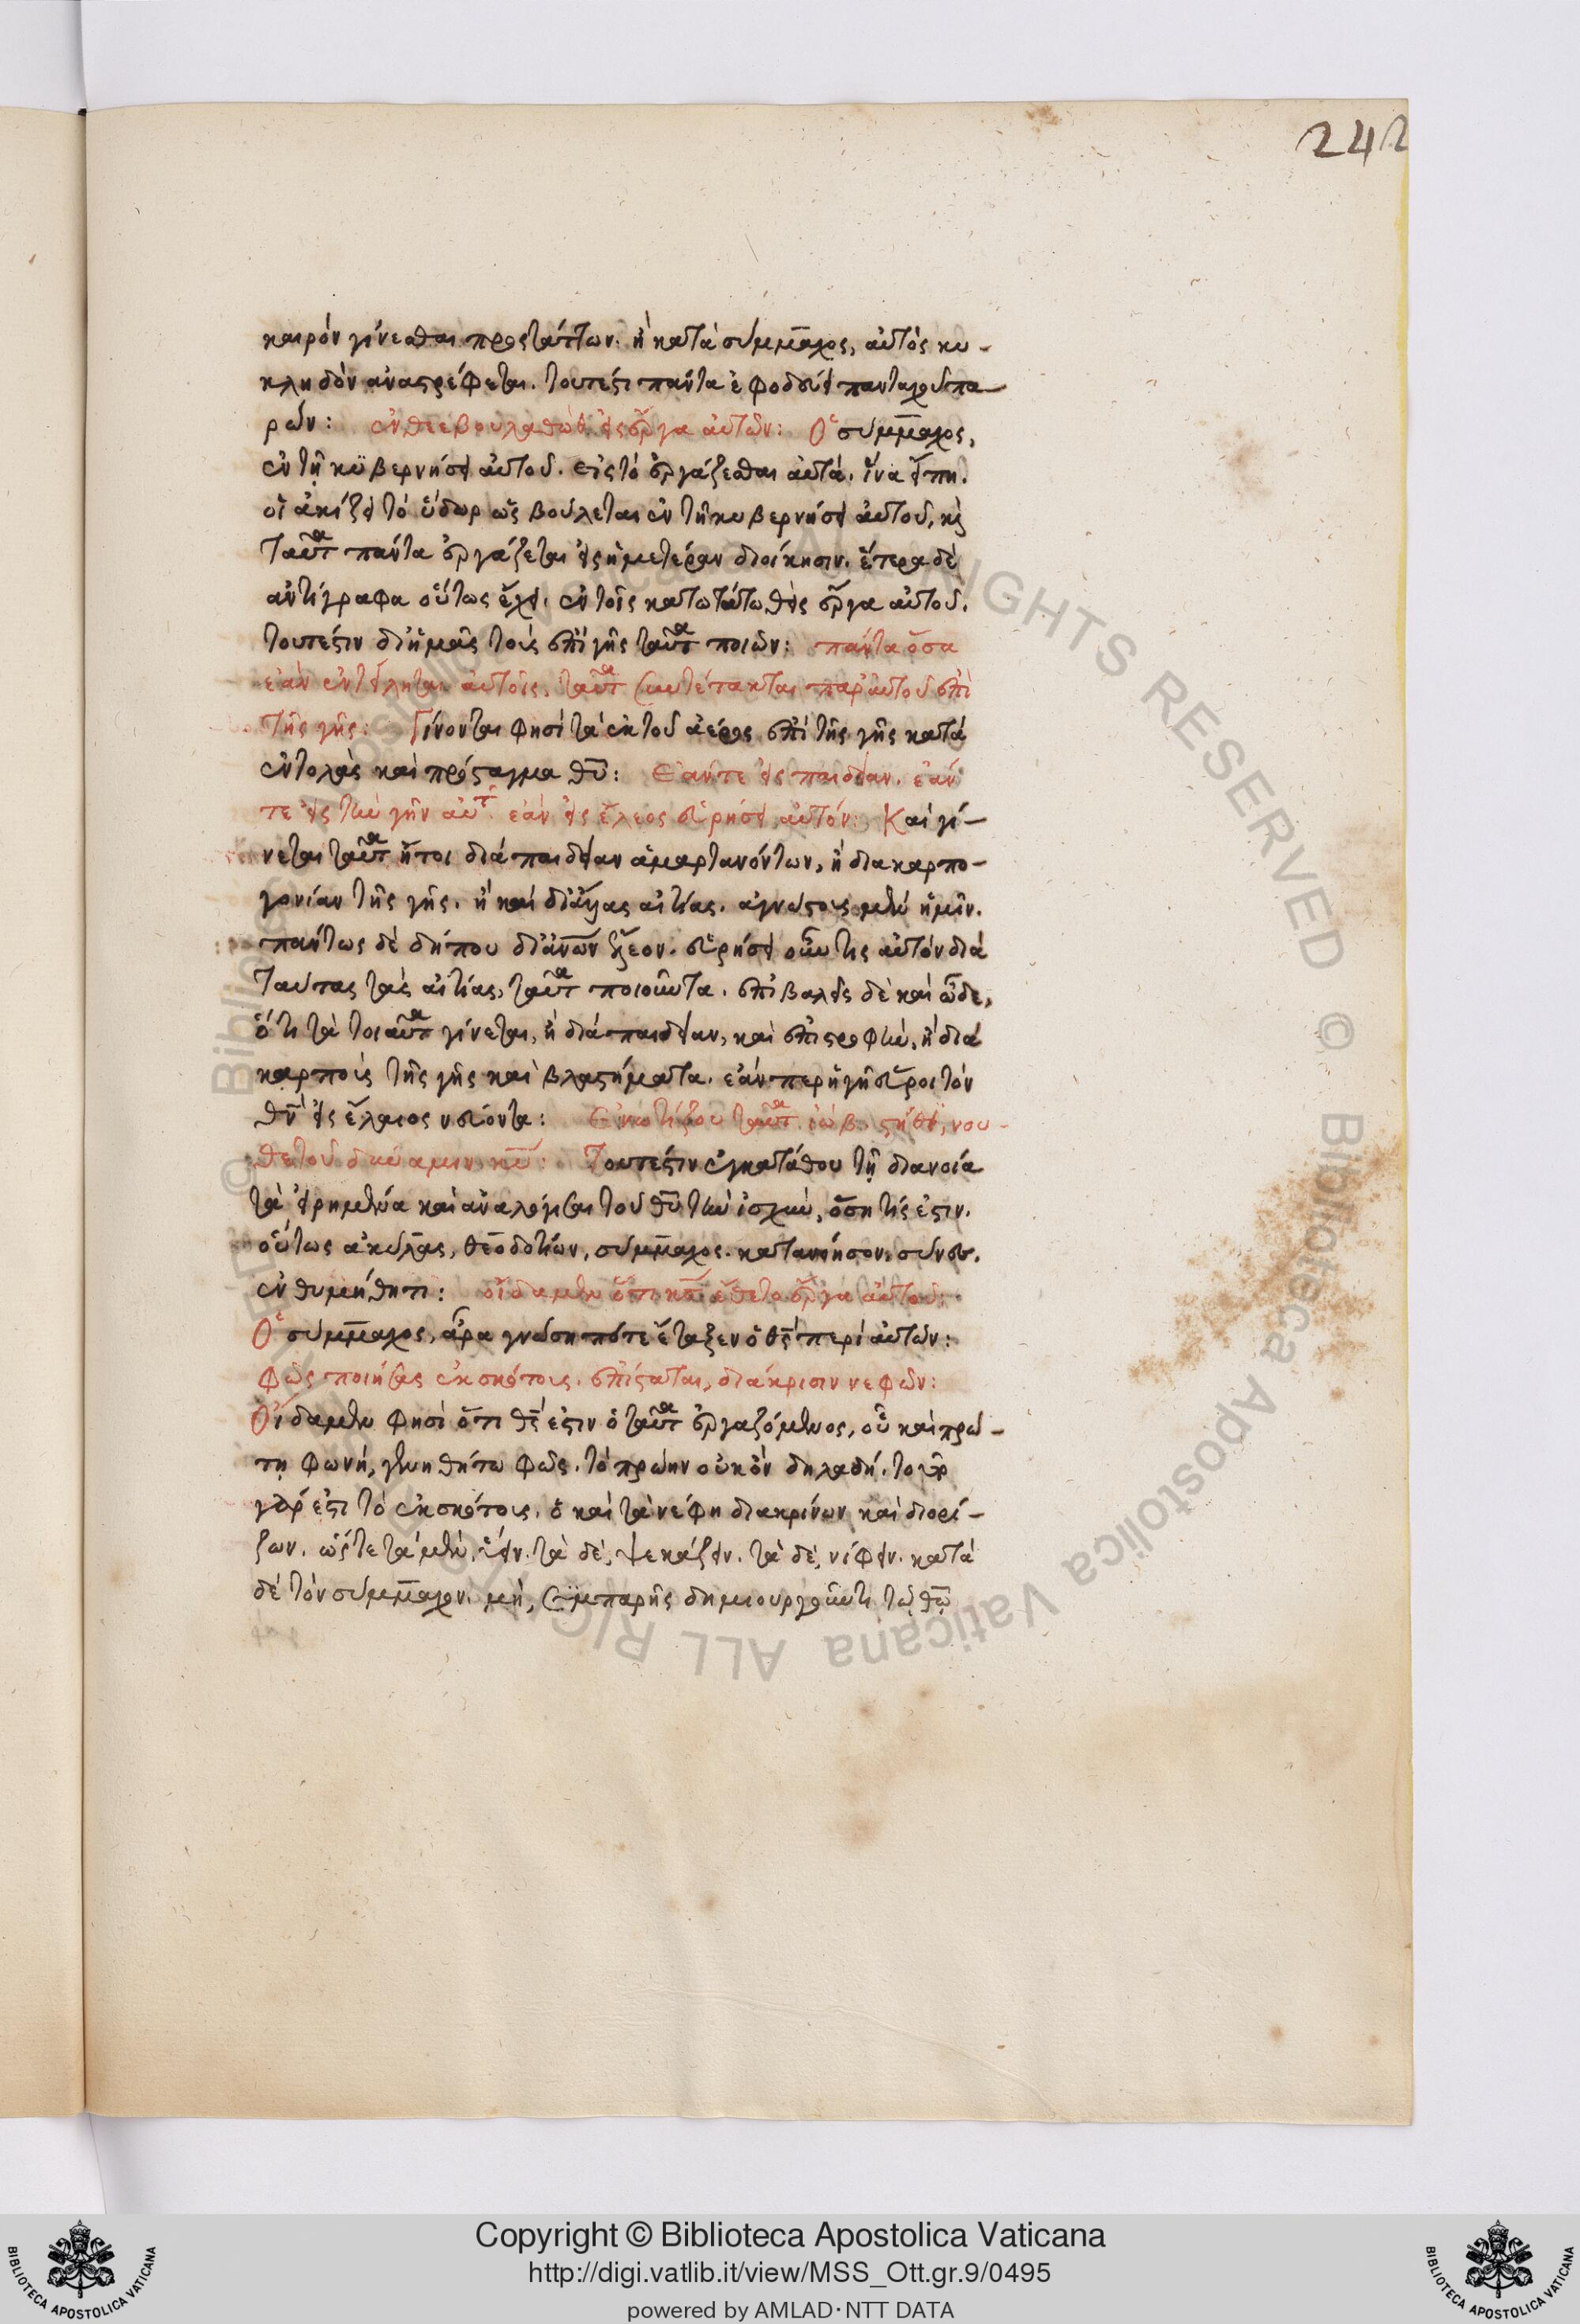 242
καιρὸν γίνεσθαι προστάττων. ἢ κατὰ σύμμαχος, αὐτὸς κυ-
κληδὸν ἀναστρέφεται. τουτέστι πάντα ἐφοδεύει πανταχοῦ πα-
ρών: ἐν θεεβουλαθὼθ εἰς ἔργα αὐτῶν: Ὁ δὲ σύμμαχος,
ἐν τῇ κυβερνήσει αὐτοῦ. εἰς τὸ ἐργάζεσθαι αὐτά. ἵνα εἴπῃ.
τὸ ὕδωρ ὡς βούλεται ἐν τῇ κυβερνήσει αὐτοῦ, καὶ
ταῦτα πάντα ἐργάζεται εἰς ἡμετέραν διοίκησιν. ἕτερα δὲ
ἀντίγραφα οὕτως ἔχει. ἐν τοῖς κατωτάτω θεὶς ἔργα αὐτοῦ.
τουτέστιν δι' ἡμᾶς τοὺς ἐπὶ γῆς ταῦτα ποιῶν: πάντα ὅσα
ἐὰν ἐντείληται αὐτοῖς. ταῦτα συντέτακται παρ' αὐτοῦ ἐπὶ
τῆς γῆς: Γίνονται φησὶ τὰ ἐκ τοῦ ἀέρος ἐπὶ τῆς γῆς κατὰ
ἐντολὰς καὶ πρόσταγμα θυ: Ἐάν τε εἰς παιδείαν. ἐάν
τε εἰς τὴν γῆν αὐτοῦ. ἐὰν εἰς ἔλεος εὑρήσει αὐτόν: Καὶ γί-
νεται ταῦτα ἤτοι διὰ παιδείαν ἁμαρτανόντων, ἢ διὰ καρπο-
γονίαν τῆς γῆς. ἢ καὶ δι' ἄλλας αἰτίας. ἀγνώστους μὲν ἡμῖν.
πάντως δὲ δήπου δι' ἀνων ἔλεον. εὑρήσει οὖν τις αὐτὸν διὰ
ταύτας τὰς αἰτίας, ταῦτα ποιοῦντα. ἐπιβαλεῖς δὲ καὶ ὧδε,
ὅτι τὰ τοιαῦτα γίνεται, ἢ διὰ παιδείαν, καὶ ἐπιστροφὴν, ἢ διὰ
καρποὺς τῆς γῆς καὶ βλαστήματα. ἐάν περ ἡ γῆ εὕροι τὸν
θν εἰς ἔλαιος νεύοντα: Ἐνωτίζου ταῦτα ἰώβ. στῆθι, νου-
θετοῦ δύναμιν κυ: Τουτέστιν ἐγκατάθου τῇ διανοίᾳ
τὰ εἰρημένα καὶ ἀναλόγισαι τοῦ θυ τὴν ἰσχὺν, ὅση τίς ἐστιν.
οὕτως ἀκύλας, θεοδοτίων, σύμμαχος. κατανόησον. σύνες.
ἐνθυμήθητι: οἴδαμεν ὅτι κς ἔθετο ἔργα αὐτοῦ:
Ὁ δὲ σύμμαχος, ἆρα γνώσῃ πότε ἔταξεν ὁ θς περὶ αὐτῶν:
φῶς ποιήσας ἐκ σκότους. ἐπίσταται, διάκρισιν νεφῶν:
Οἴδαμεν φησὶ ὅτι θς ἐστιν ὁ ταῦτα ἐργαζόμενος, οὗ καὶ πρώ-
τη φωνή, γενηθήτω φῶς. τὸ πρώην οὐκ ὂν δηλαδή. τοῦτο
γάρ ἐστι τὸ ἐκ σκότους. ὁ καὶ τὰ νέφη διακρίνων καὶ διορί-
ζων. ὥστε τὰ μὲν, ὕειν. τὰ δὲ, ψεκάζειν. τὰ δὲ, νίφειν. κατὰ
δὲ τὸν σύμμαχον. μὴ, συμπαρῇς δημιουργοῦντι τῷ θω
Copyright © Biblioteca Apostolica Vaticana
http://digi.vatlib.it/view/MSS_Ott.gr.9/0495
powered by AMLAD · NTT DATA
BIBLIOTECA APOSTOLICA VATICANA
BIBLIOTECA APOSTOLICA VATICANA
© Biblioteca Apostolica Vaticana ALL RIGHTS RESERVED